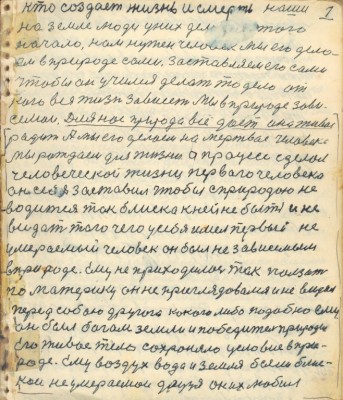 кто создает жизнь и смерть наши 1
на земле люди у них дело того
начало, нам нужен человек мы его дела
ем в природе сами. заставляем его сами
чтобы он учился делат то дело от
кого вся жизн зависет мы в природе зави
семси. Для нас природа всё дает она живая
радит А мы его делаем на мертвае человек
мы рождаем для жизни а процес сделал
человеческой жизни первого человека
он себя заставил чтобы с природою не
водится так близка к ней не быть и не
видат того чего у себя имел первый не
умераемый человек он был не зависемым
в природе. Ему не приходилос так ползат
по материку он не приглядовался и не видел
перед собою другого какого либо подобно ему
он был богам земли и победител природы
Его живое тело сохроняло условие в при-
роде. Ему воздух вода и земля были близ-
кои не умераемои друзя он их любил